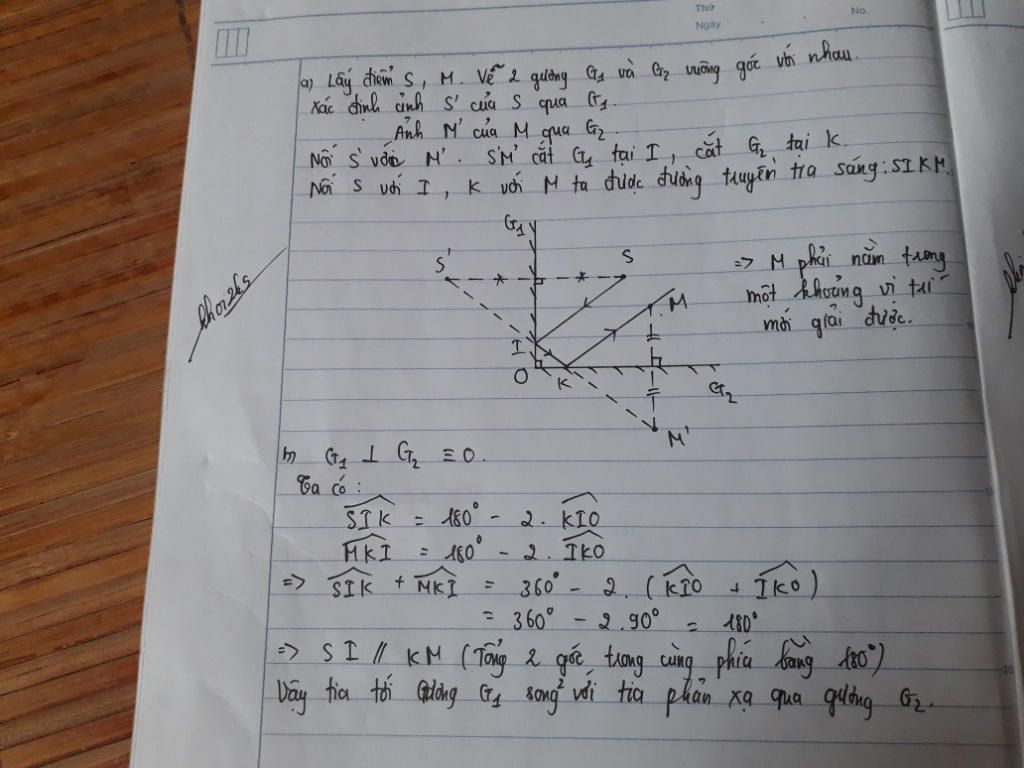 Thứ
Ngày
No.
a) Lấy điểm S, M. Vẽ 2 gương G1 và G2 vuông góc với nhau.
Xác định ảnh S' của S qua G1.
Ảnh M' của M qua G2.
Nối S' với M'. S'M' cắt G1 tại I, cắt G2 tại K.
Nối S với I, K với M ta được đường truyền tia sáng: SIKM.
G1
S'
S
M
I
O
K
G2
M'
=> M phải nằm trong
một khoảng vị trí
mới giải được.
khoi2k5
b) G1 ⊥ G2 ≡ O.
Ta có:
SIK = 180° - 2. KIO
MKI = 180° - 2. IKO
=> SIK + MKI = 360° - 2. (KIO + IKO)
= 360° - 2.90° = 180°
=> SI // KM (Tổng 2 góc trong cùng phía bằng 180°)
Vậy tia tới gương G1 song² với tia phản xạ qua gương G2.